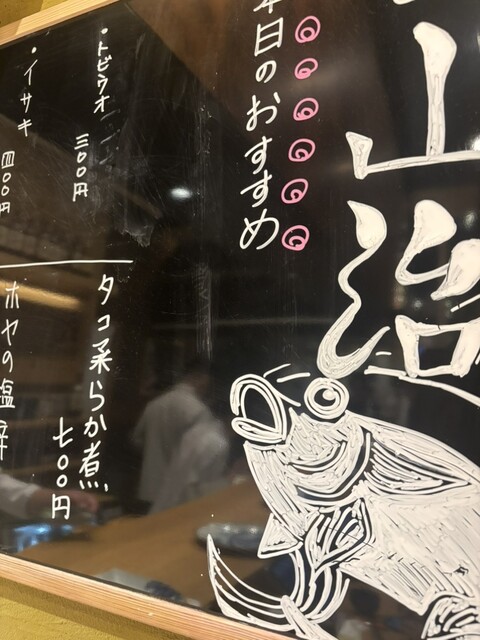 山治
本日のおすすめ
・トビウオ
三〇〇円
・イサキ
四〇〇円
タコ柔らか煮
七〇〇円
ホヤの塩辛